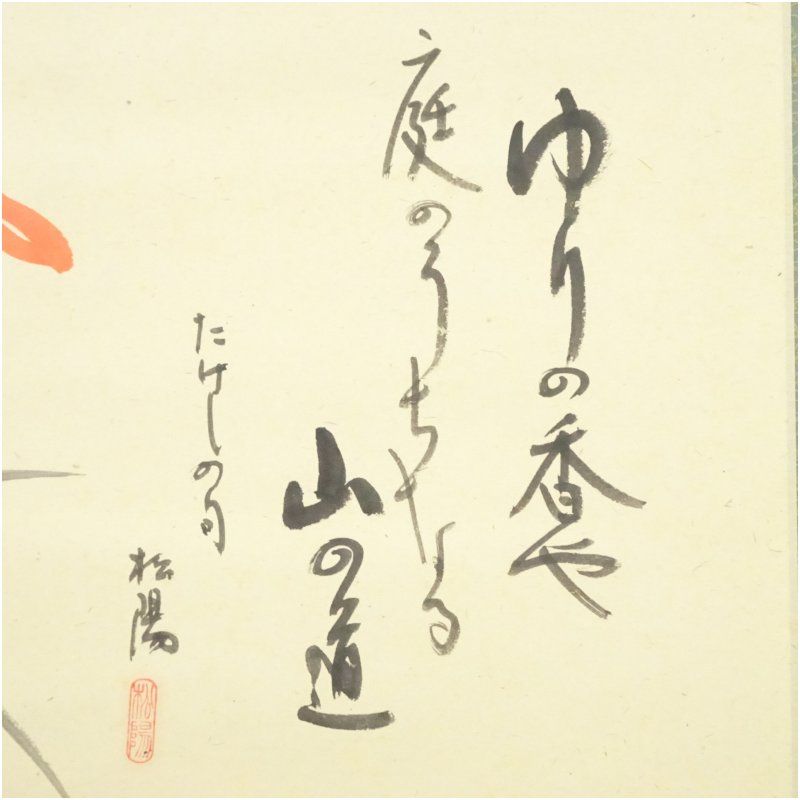 ゆりの香や
庭のうちなる
山の道
たけしの句
松陽
松陽